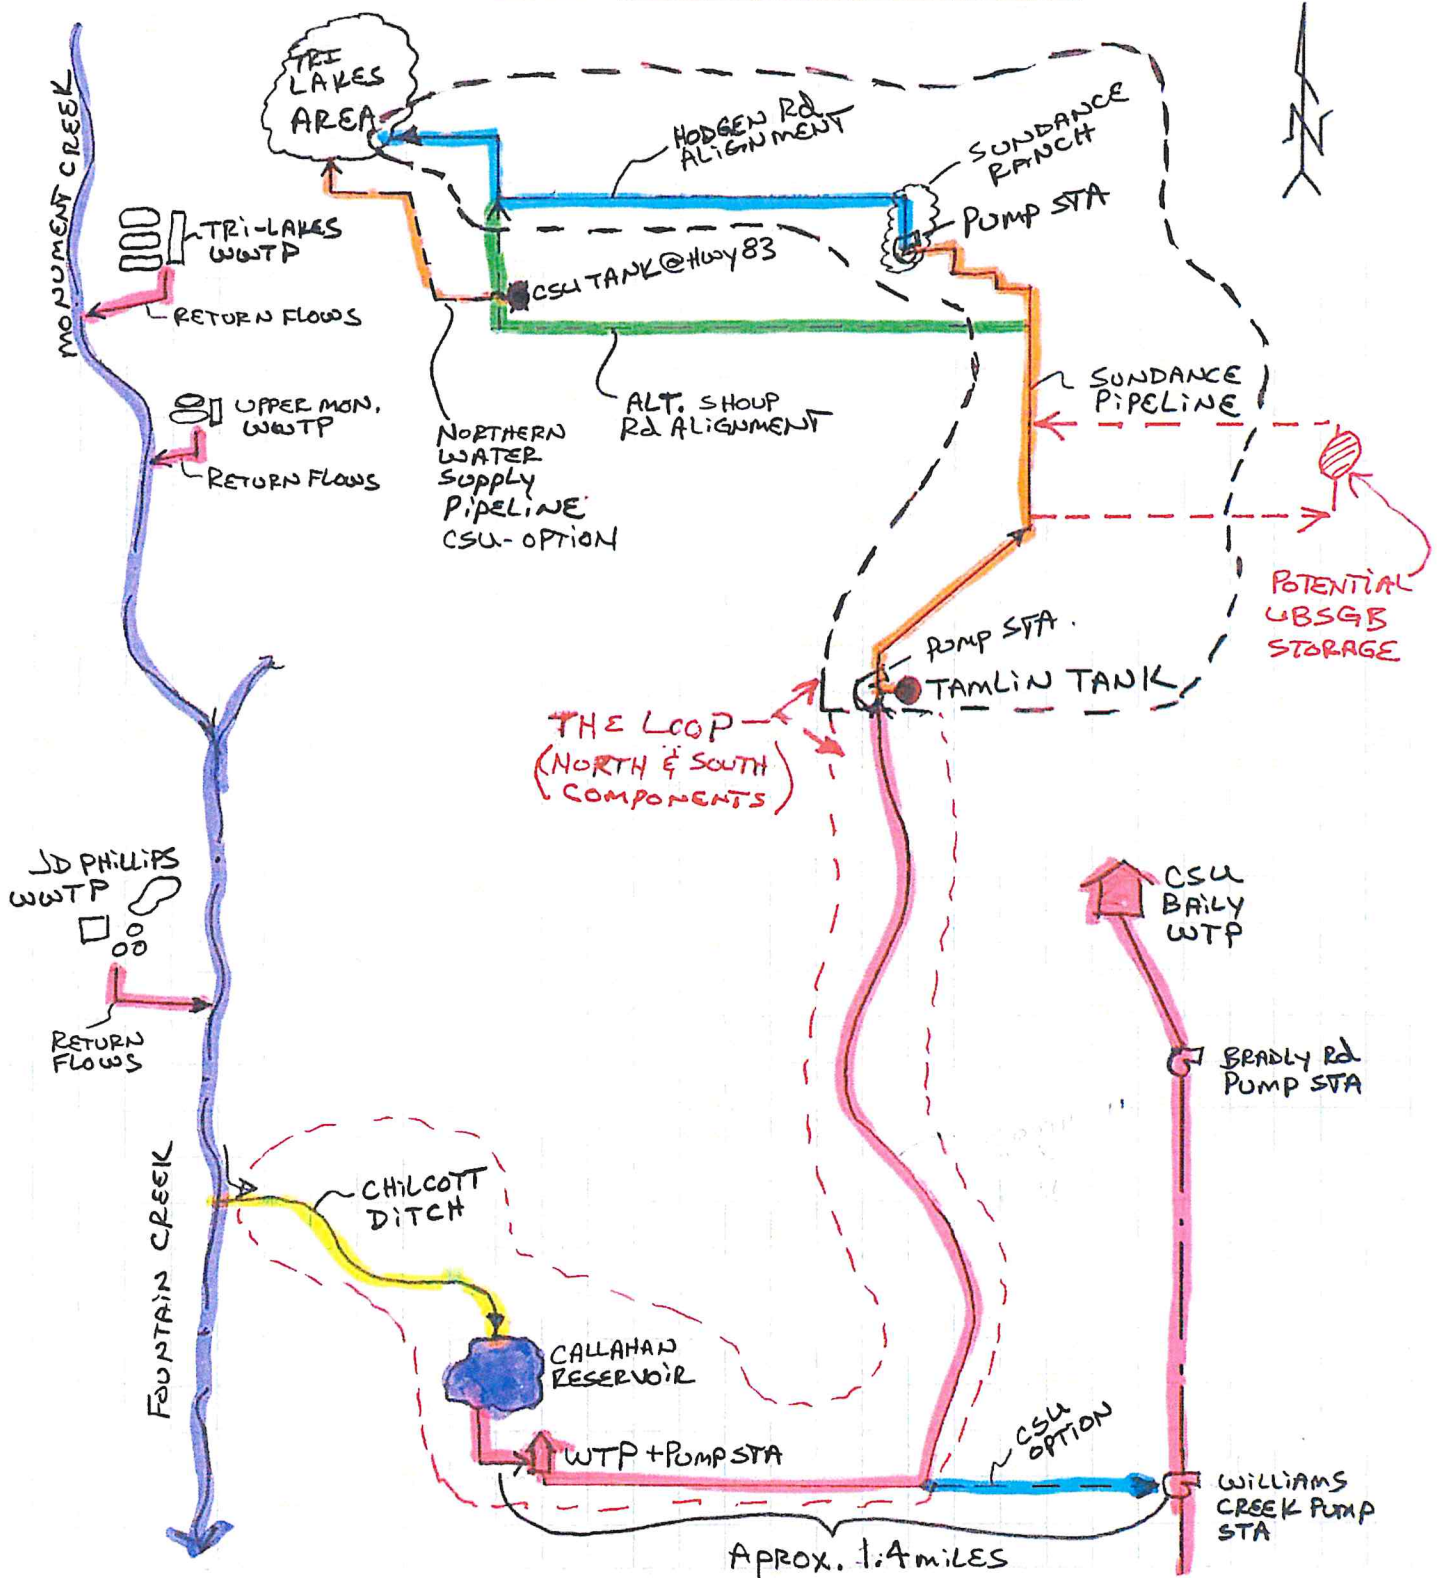 TRI
LAKES
AREA
MONUMENT CREEK
HODGEN Rd
ALIGNMENT
SUNDANCE
RANCH
PUMP STA
N
TRI-LAKES
WWTP
RETURN FLOWS
CSU TANK @ HWY 83
UPPER MON.
WWTP
RETURN FLOWS
NORTHERN
WATER
SUPPLY
PIPELINE
CSU-OPTION
ALT. SHOUP
Rd ALIGNMENT
SUNDANCE
PIPELINE
POTENTIAL
UBSGB
STORAGE
PUMP STA.
TAMLIN TANK
THE LOOP
(NORTH & SOUTH
COMPONENTS)
JD PHILLIPS
WWTP
RETURN
FLOWS
CSU
BAILY
WTP
BRADLY Rd
PUMP STA
FOUNTAIN CREEK
CHILCOTT
DITCH
CALLAHAN
RESERVOIR
WTP + PUMP STA
CSU
OPTION
WILLIAMS
CREEK PUMP
STA
APROX. 1.4 MILES